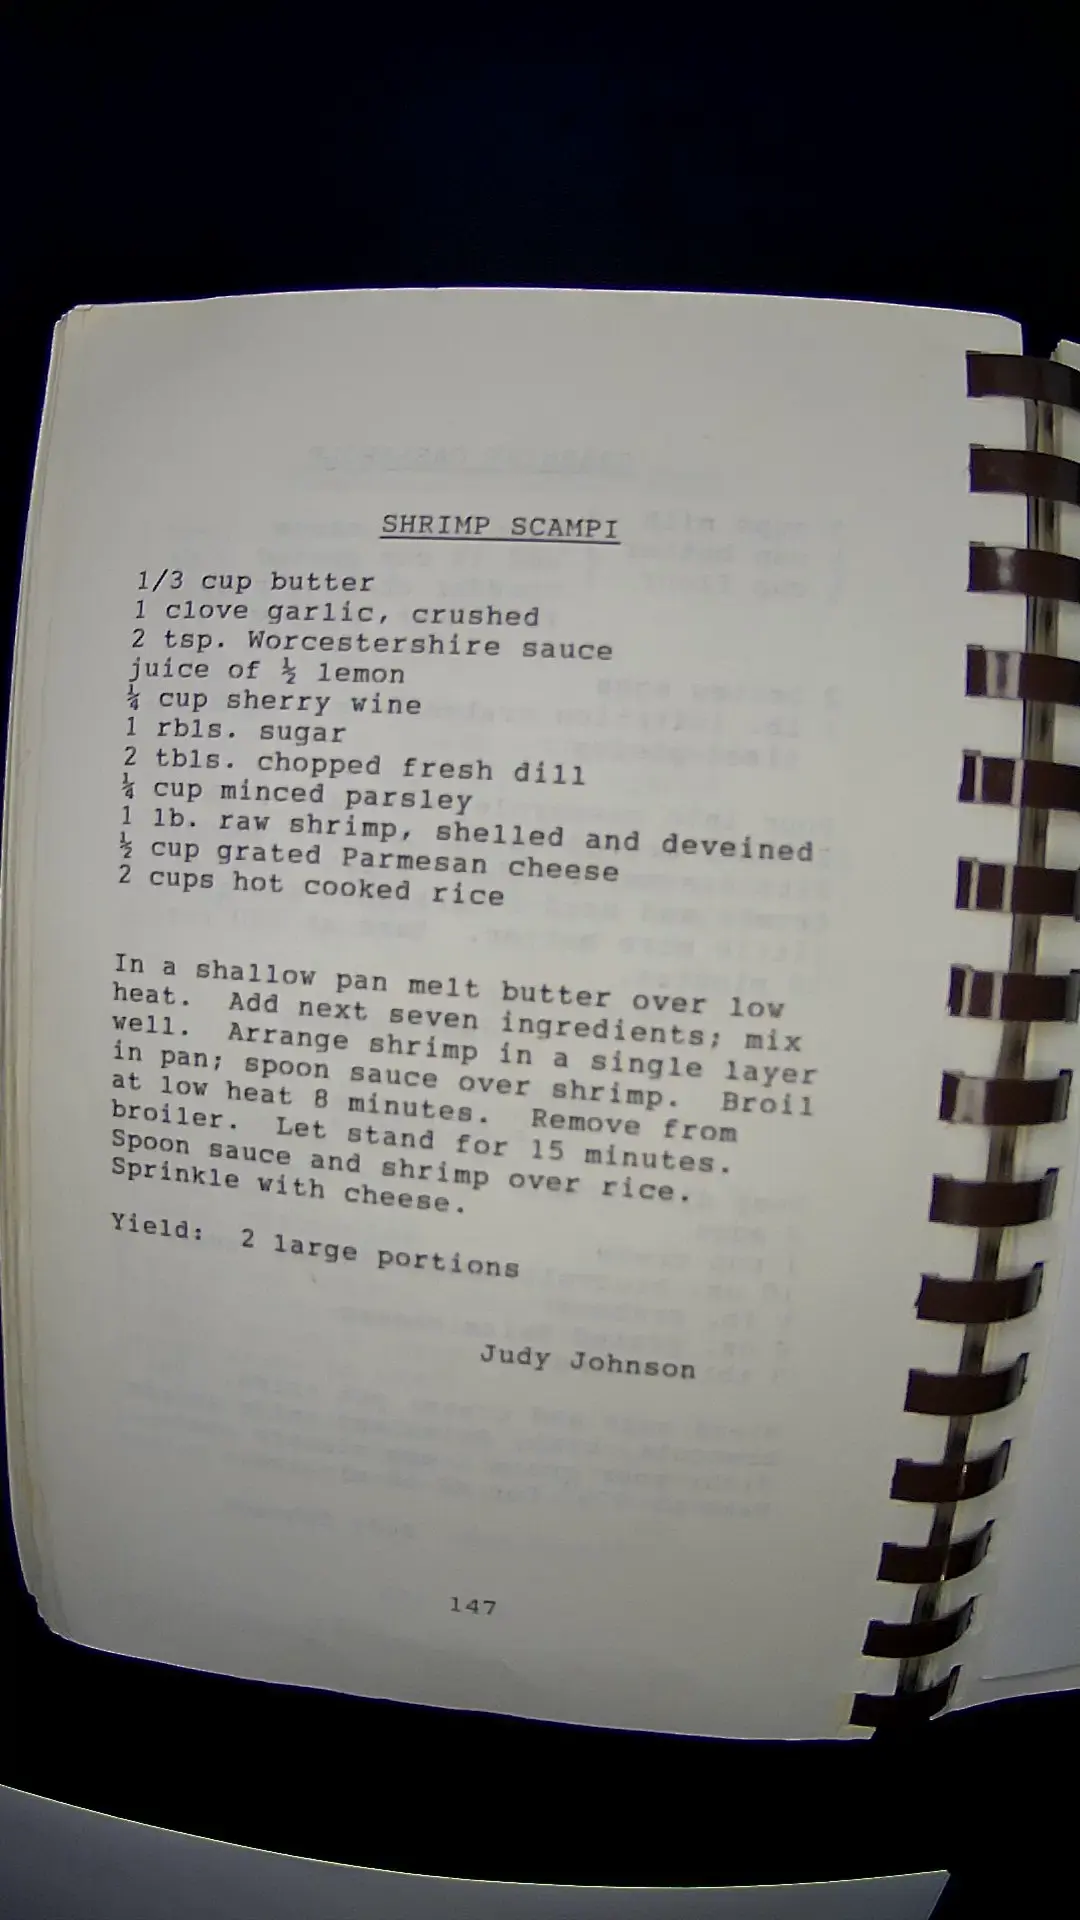 SHRIMP SCAMPI
1/3 cup butter
1 clove garlic, crushed
2 tsp. Worcestershire sauce
juice of ½ lemon
¼ cup sherry wine
1 rbls. sugar
2 tbls. chopped fresh dill
¼ cup minced parsley
1 lb. raw shrimp, shelled and deveined
½ cup grated Parmesan cheese
2 cups hot cooked rice
In a shallow pan melt butter over low
heat. Add next seven ingredients; mix
well. Arrange shrimp in a single layer
in pan; spoon sauce over shrimp. Broil
at low heat 8 minutes. Remove from
broiler. Let stand for 15 minutes.
Spoon sauce and shrimp over rice.
Sprinkle with cheese.
Yield: 2 large portions
Judy Johnson
147